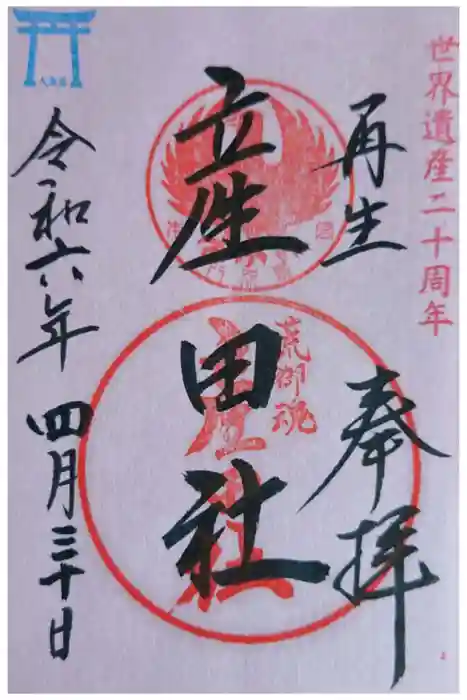 世界遺産二十周年
再生
奉拝
産田社
荒御魂
産田社
令和六年四月三十日